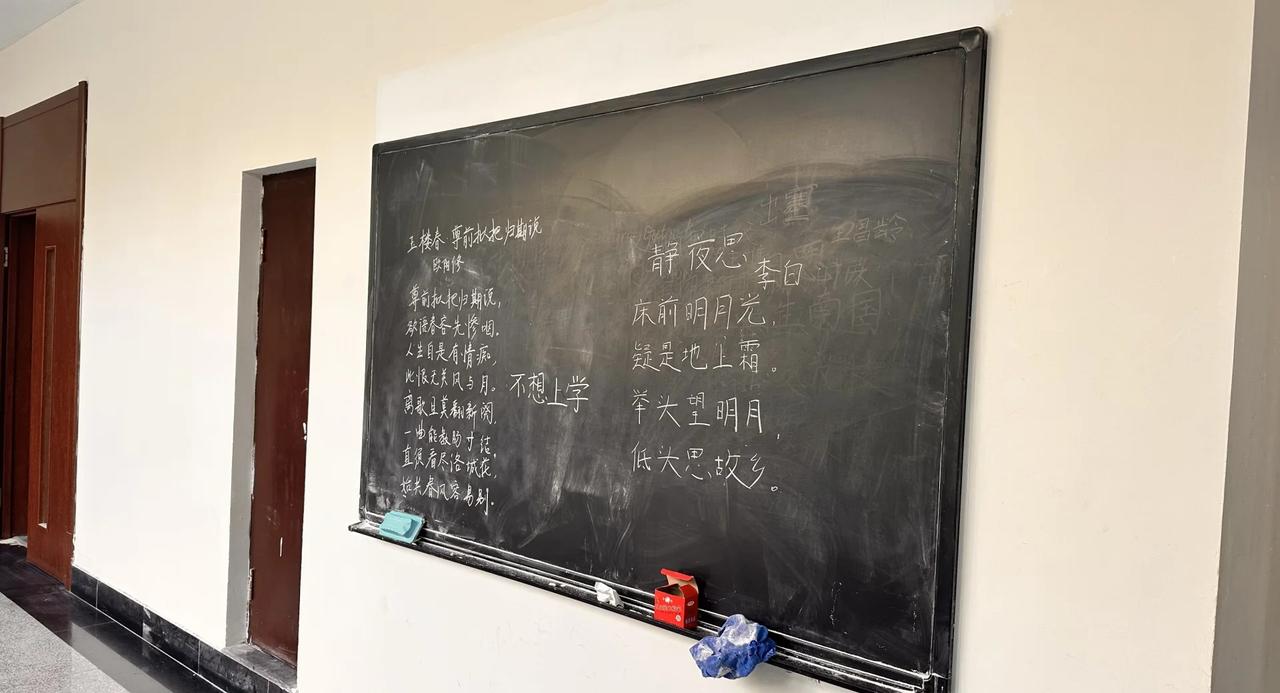 玉楼春 尊前拟把归期说
欧阳修
尊前拟把归期说,
欲语春容先惨咽。
人生自是有情痴,
此恨无关风与月。
离歌且莫翻新阕,
一曲能教肠寸结。
直须看尽洛城花,
始共春风容易别。
不想上学
静夜思
李白
床前明月光,
疑是地上霜。
举头望明月,
低头思故乡。
出塞
王昌龄
生南国